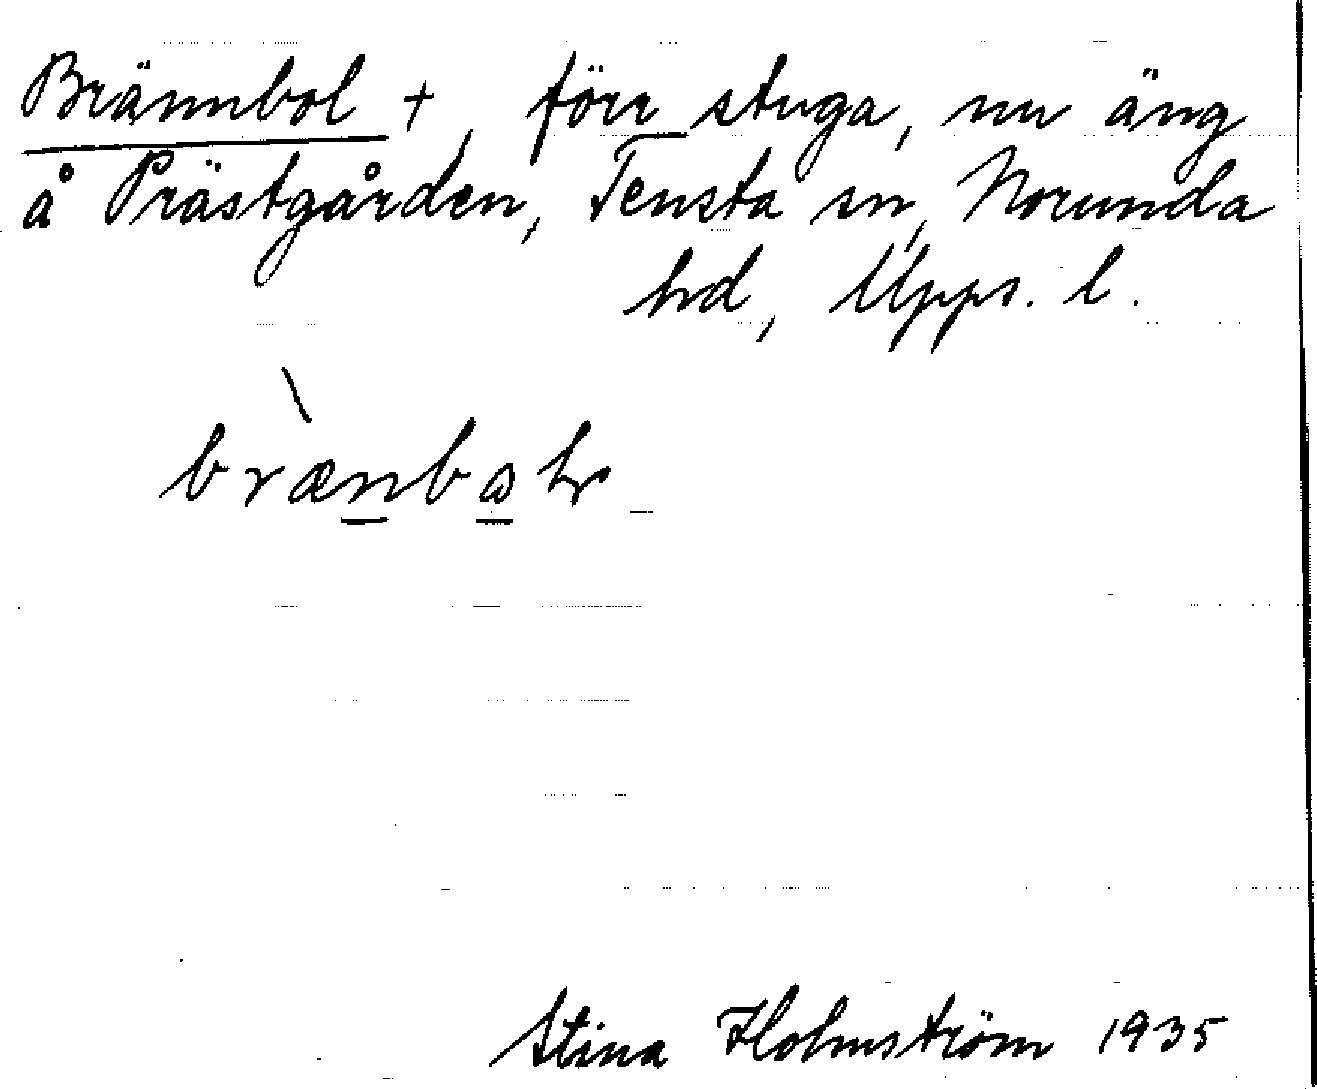 Brännbol +, förr stuga, nu äng
å Prästgården, Tensta sn, Norunda
hd, Upps. l.
Stina Holmström 1935